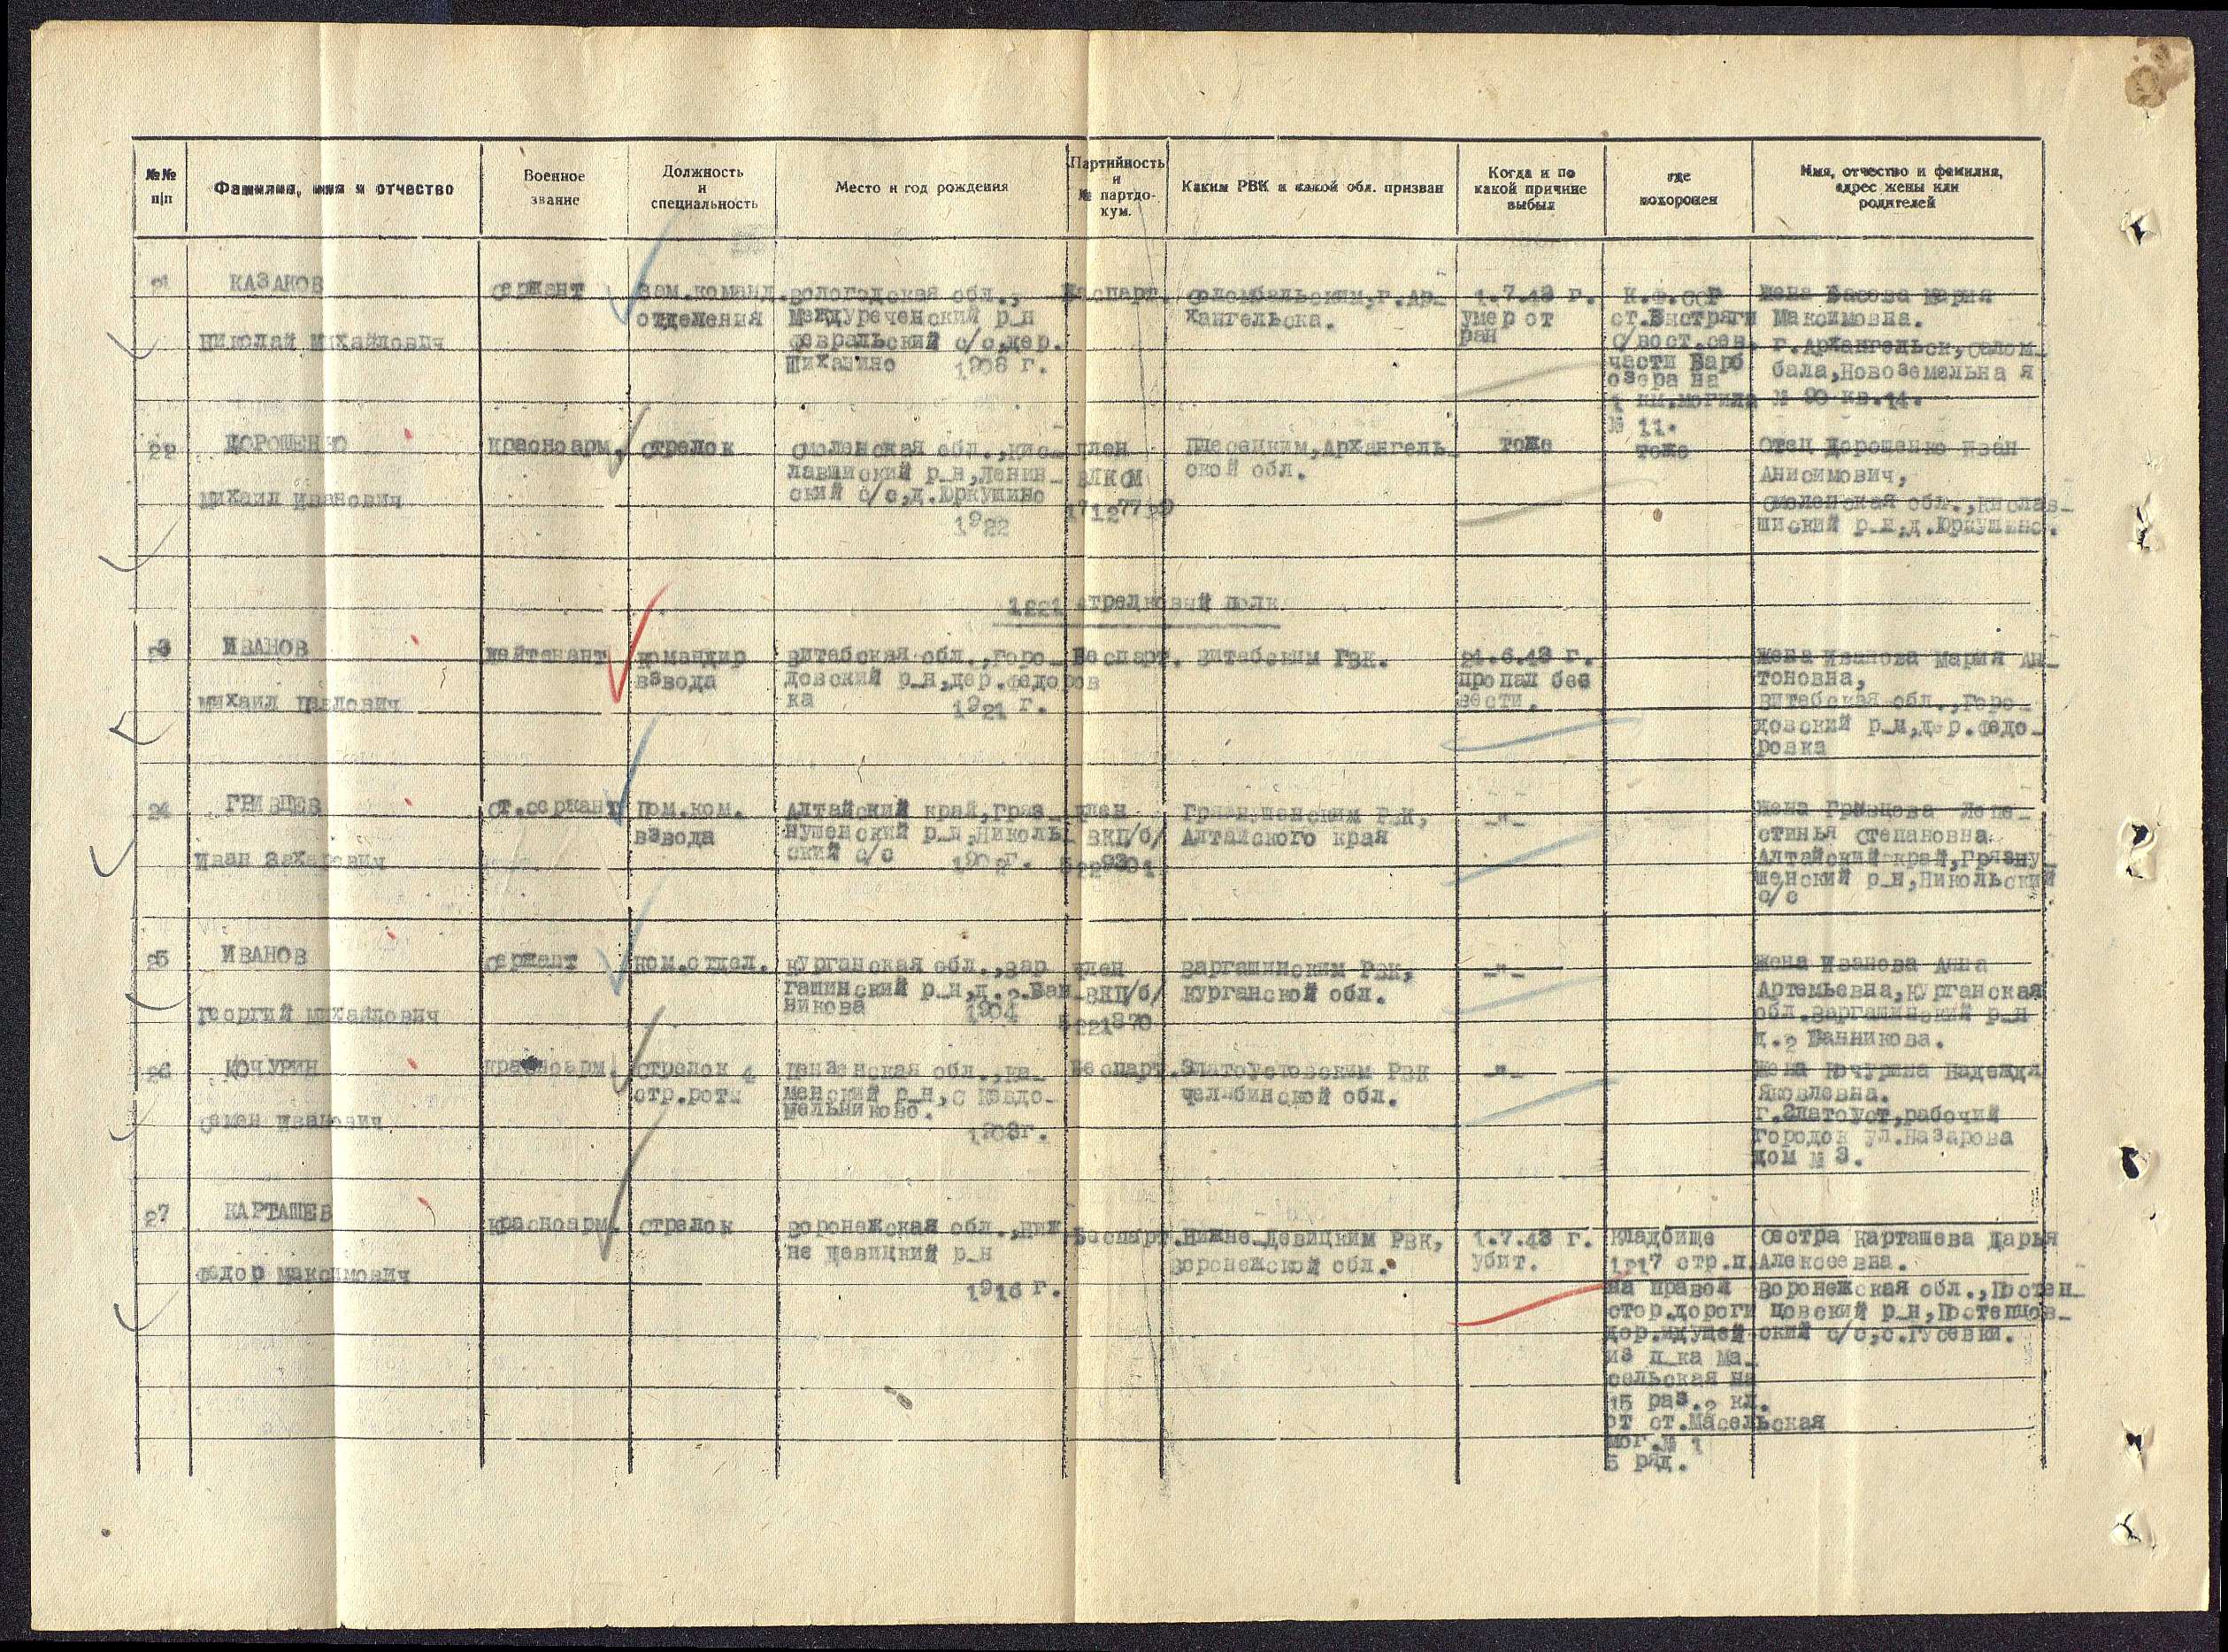 №№ п/п
Фамилия, имя и отчество
Военное звание
Должность и специальность
Место и год рождения
Партийность и № партдокум.
Каким РВК и какой обл. призван
Когда и по какой причине выбыл
где похоронен
Имя, отчество и фамилия, адрес жены или родителей
21
КАЗАКОВ
Николай Михайлович
сержант
зам.команд.
отделения
Вологодская обл.,
Междуреченский р_н
Февральский с/с,дер.
1908 г.
Беспарт.
Соломбальским,г.Ар_
хангельска.
1.7.43 г.
умер от
ран
К.Ф.ССР
с/вост.сев.
части Варб
озера на
1 км.могила
№ 11.
жена Басова Мария
Максимовна.
г.Архангельск,Солом_
бала,Новоземельная
№ 90 кв.14.
22
ДОРОШЕНКО
Михаил Иванович
красноарм.
стрелок
Смоленская обл.,Кис_
лавшиский р_н,Ленин_
ский с/с,д.Юркушино
1922
член
ВЛКСМ
Плесецким,Архангель_
ской обл.
тоже
тоже
Отец Дорошенко Иван
Анисимович,
Смоленская обл.,Кислав_
шиский р_н,д.Юркушино.
1221 стрелковый полк
23
ИВАНОВ
Михаил Павлович
лейтенант
командир
взвода
Витебская обл.,Горо_
довский р_н,дер.Федоров
ка
1921 г.
Беспарт.
Витебским ГВК.
21.6.43 г.
пропал без
вести.
жена Иванова Мария Ан_
тоновна,
Витебская обл.,Горо_
довский р_н,дер.Федо_
ровка
24
ГРИВЦЕВ
Иван Захарович
ст.сержант
пом.ком.
взвода
Алтайский край,Гряз_
нушенский р_н,Николь_
ский с/с
1902г.
член
ВКП/б/
Грязнушенским РВК,
Алтайского края
_"_
стинья Степановна.
Алтайский край,Грязну_
шенский р_н,Никольский
с/с
25
ИВАНОВ
Георгий Михайлович
сержант
ком.отдел.
Курганская обл.,Вар
гашинский р_н,д.2 Бан_
никова
1904
член
ВКП/б/
5221870
Варгашинским РВК,
Курганской обл.
_"_
жена Иванова Анна
Артемьевна,Курганская
обл.Варгашинский р_н
д.2 Банникова.
26
КОЧУРИН
Семен Иванович
красноарм.
стрелок 4
стр.роты
Пензенская обл.,Ка_
менский р_н,с Кевдо_
мельниково.
1908г.
Беспарт.
Златоустовским РВК
Челябинской обл.
_"_
жена Кочурина Надежда
Яковлевна.
г.Златоуст,рабочий
городок ул.Назарова
дом № 3.
27
КАРТАШЕВ
Федор Максимович
красноарм.
стрелок
Воронежская обл.,Ниж
не Девицкий р_н
1916 г.
Беспарт.
Нижне_Девицким РВК,
Воронежской обл.
1.7.43 г.
убит.
кладбище
1217 стр.п.
на правой
стор.дороги
дор.идущей
из п_ка Ма_
сельская на
15 раз.2 кл.
от ст.Масельская
мог.№ 1
5 ряд.
сестра Карташева Дарья
Алексеевна.
Воронежская обл.,
ский с/с,с.Гусевки.